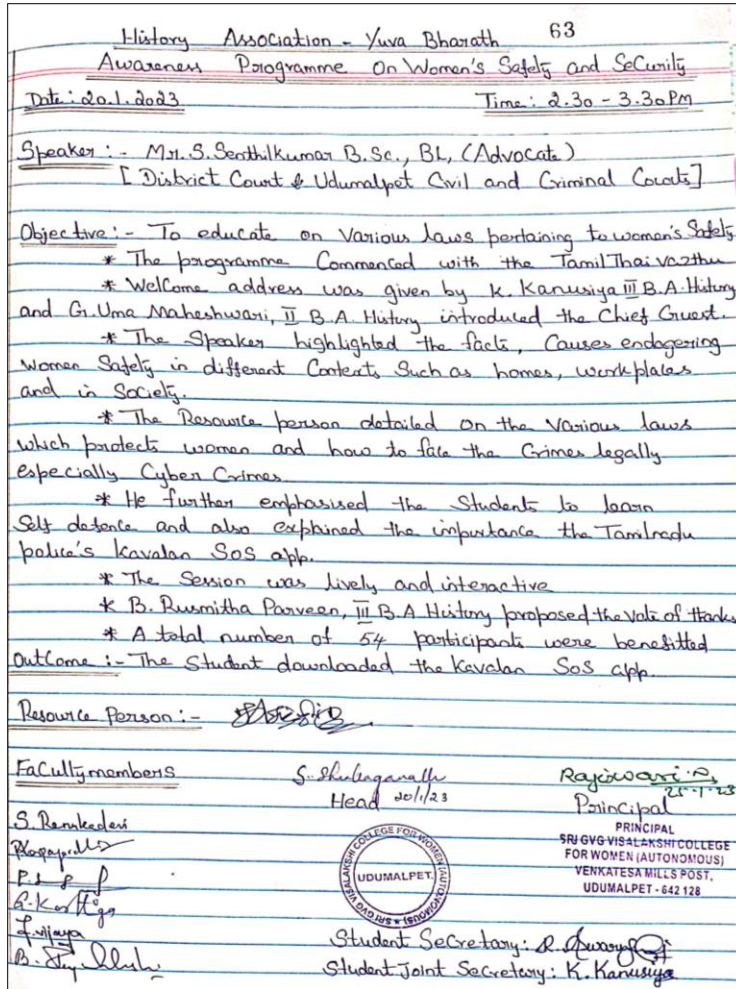 63
History Association - Yuva Bharath
Awareness Programme On Women's Safety and Security
Date: 20.1.2023 Time: 2.30 - 3.30 PM
Speaker:- Mr. S. Senthilkumar B.Sc., BL, (Advocate)
[District Court & Udumalpet Civil and Criminal Courts]
Objective:- To educate on Various laws pertaining to women's Safety
* The programme Commenced with the Tamil Thai vazthu
* Welcome address was given by K. Kanusiya III B.A. History
and G. Uma Maheshwari, II B.A. History introduced the Chief Guest.
* The Speaker highlighted the facts, Causes endagering
women Safety in different Contexts Such as homes, workplaces
and in Society.
* The Resource person detailed on the various laws
which protects women and how to face the Crimes legally
especially Cyber Crimes.
* He further emphasised the Students to learn
Self defence and also explained the importance the Tamilnadu
police's Kavalan SOS app.
* The Session was lively and interactive
* B. Rusmitha Parveen, III B.A History proposed the Vote of thanks
* A total number of 54 participants were benefitted
OutCome:- The Student downloaded the Kavalan SOS app.
Resource Person:-
Faculty members
Head 20/1/23
Rajeswari
25-1-23
Principal
PRINCIPAL
SRI GVG VISALAKSHI COLLEGE
FOR WOMEN (AUTONOMOUS)
VENKATESA MILLS POST,
UDUMALPET - 642 128
S. Renukadevi
SRI GVG VISALAKSHI COLLEGE FOR WOMEN (AUTONOMOUS)
UDUMALPET.
S. Karthiga
J. vijaya
B.
Student Secretary:
Student Joint Secretary: K. Kanusiya